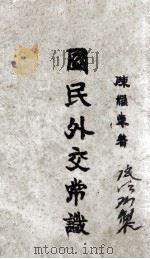 國民外交常識
陳耀東著
http://www.mtoou.info/